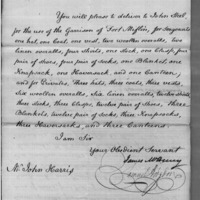 You will please to deliver to John Stol
for the use of the Garrison of Fort Mifflin, for Sergeants
one hat, one coat, one vest, two woollen overalls, two
linen overalls, four shirts, one stock, one clasp, four
pair of shoes, four pair of socks, one Blanket, one
Knapsack, one Haversack, and one Canteen,
and for Privates, three hats, three coats, three vests
six woollen overalls, six linen overalls, twelve shirts,
three stocks, three clasps, twelve pair of Shoes, three
Blankets, twelve pair of socks, three Knapsacks,
three Haversacks, and three Canteens
I am Sir
Your Obedient Servant
James McHenry
Mr. John Harris